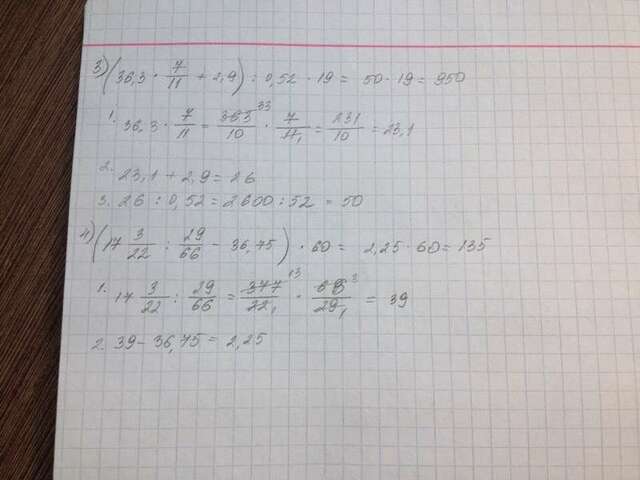 3) (36,3 · 7/11 + 2,9) : 0,52 · 19 = 50 · 19 = 950
1. 36,3 · 7/11 = 363 33/10 · 7/11 1 = 231/10 = 23,1
2. 23,1 + 2,9 = 26
3. 26 : 0,52 = 2600 : 52 = 50
4) (17 3/22 : 29/66 - 36,75) · 60 = 2,25 · 60 = 135
1. 17 3/22 : 29/66 = 377 13/22 1 · 66 3/29 1 = 39
2. 39 - 36,75 = 2,25